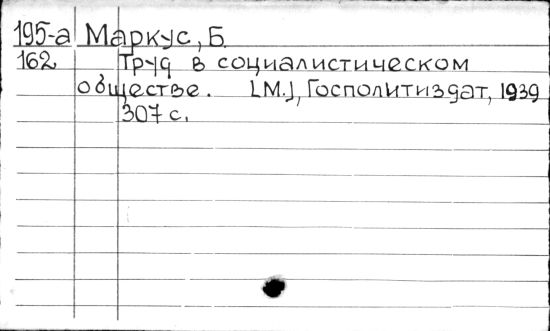 195-а Маркус, Б.
162 Труд в социалистическом
обществе. [М.], Госполитиздат, 1939
307 с.